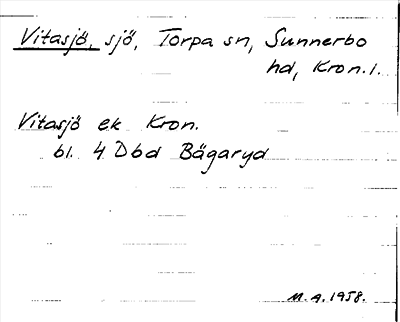 Vitasjö, sjö, Torpa sn, Sunnerbo
hd, Kron.l.
Vitasjö ek Kron.
bl. 4 Dbd Bägaryd
M.A.1958.